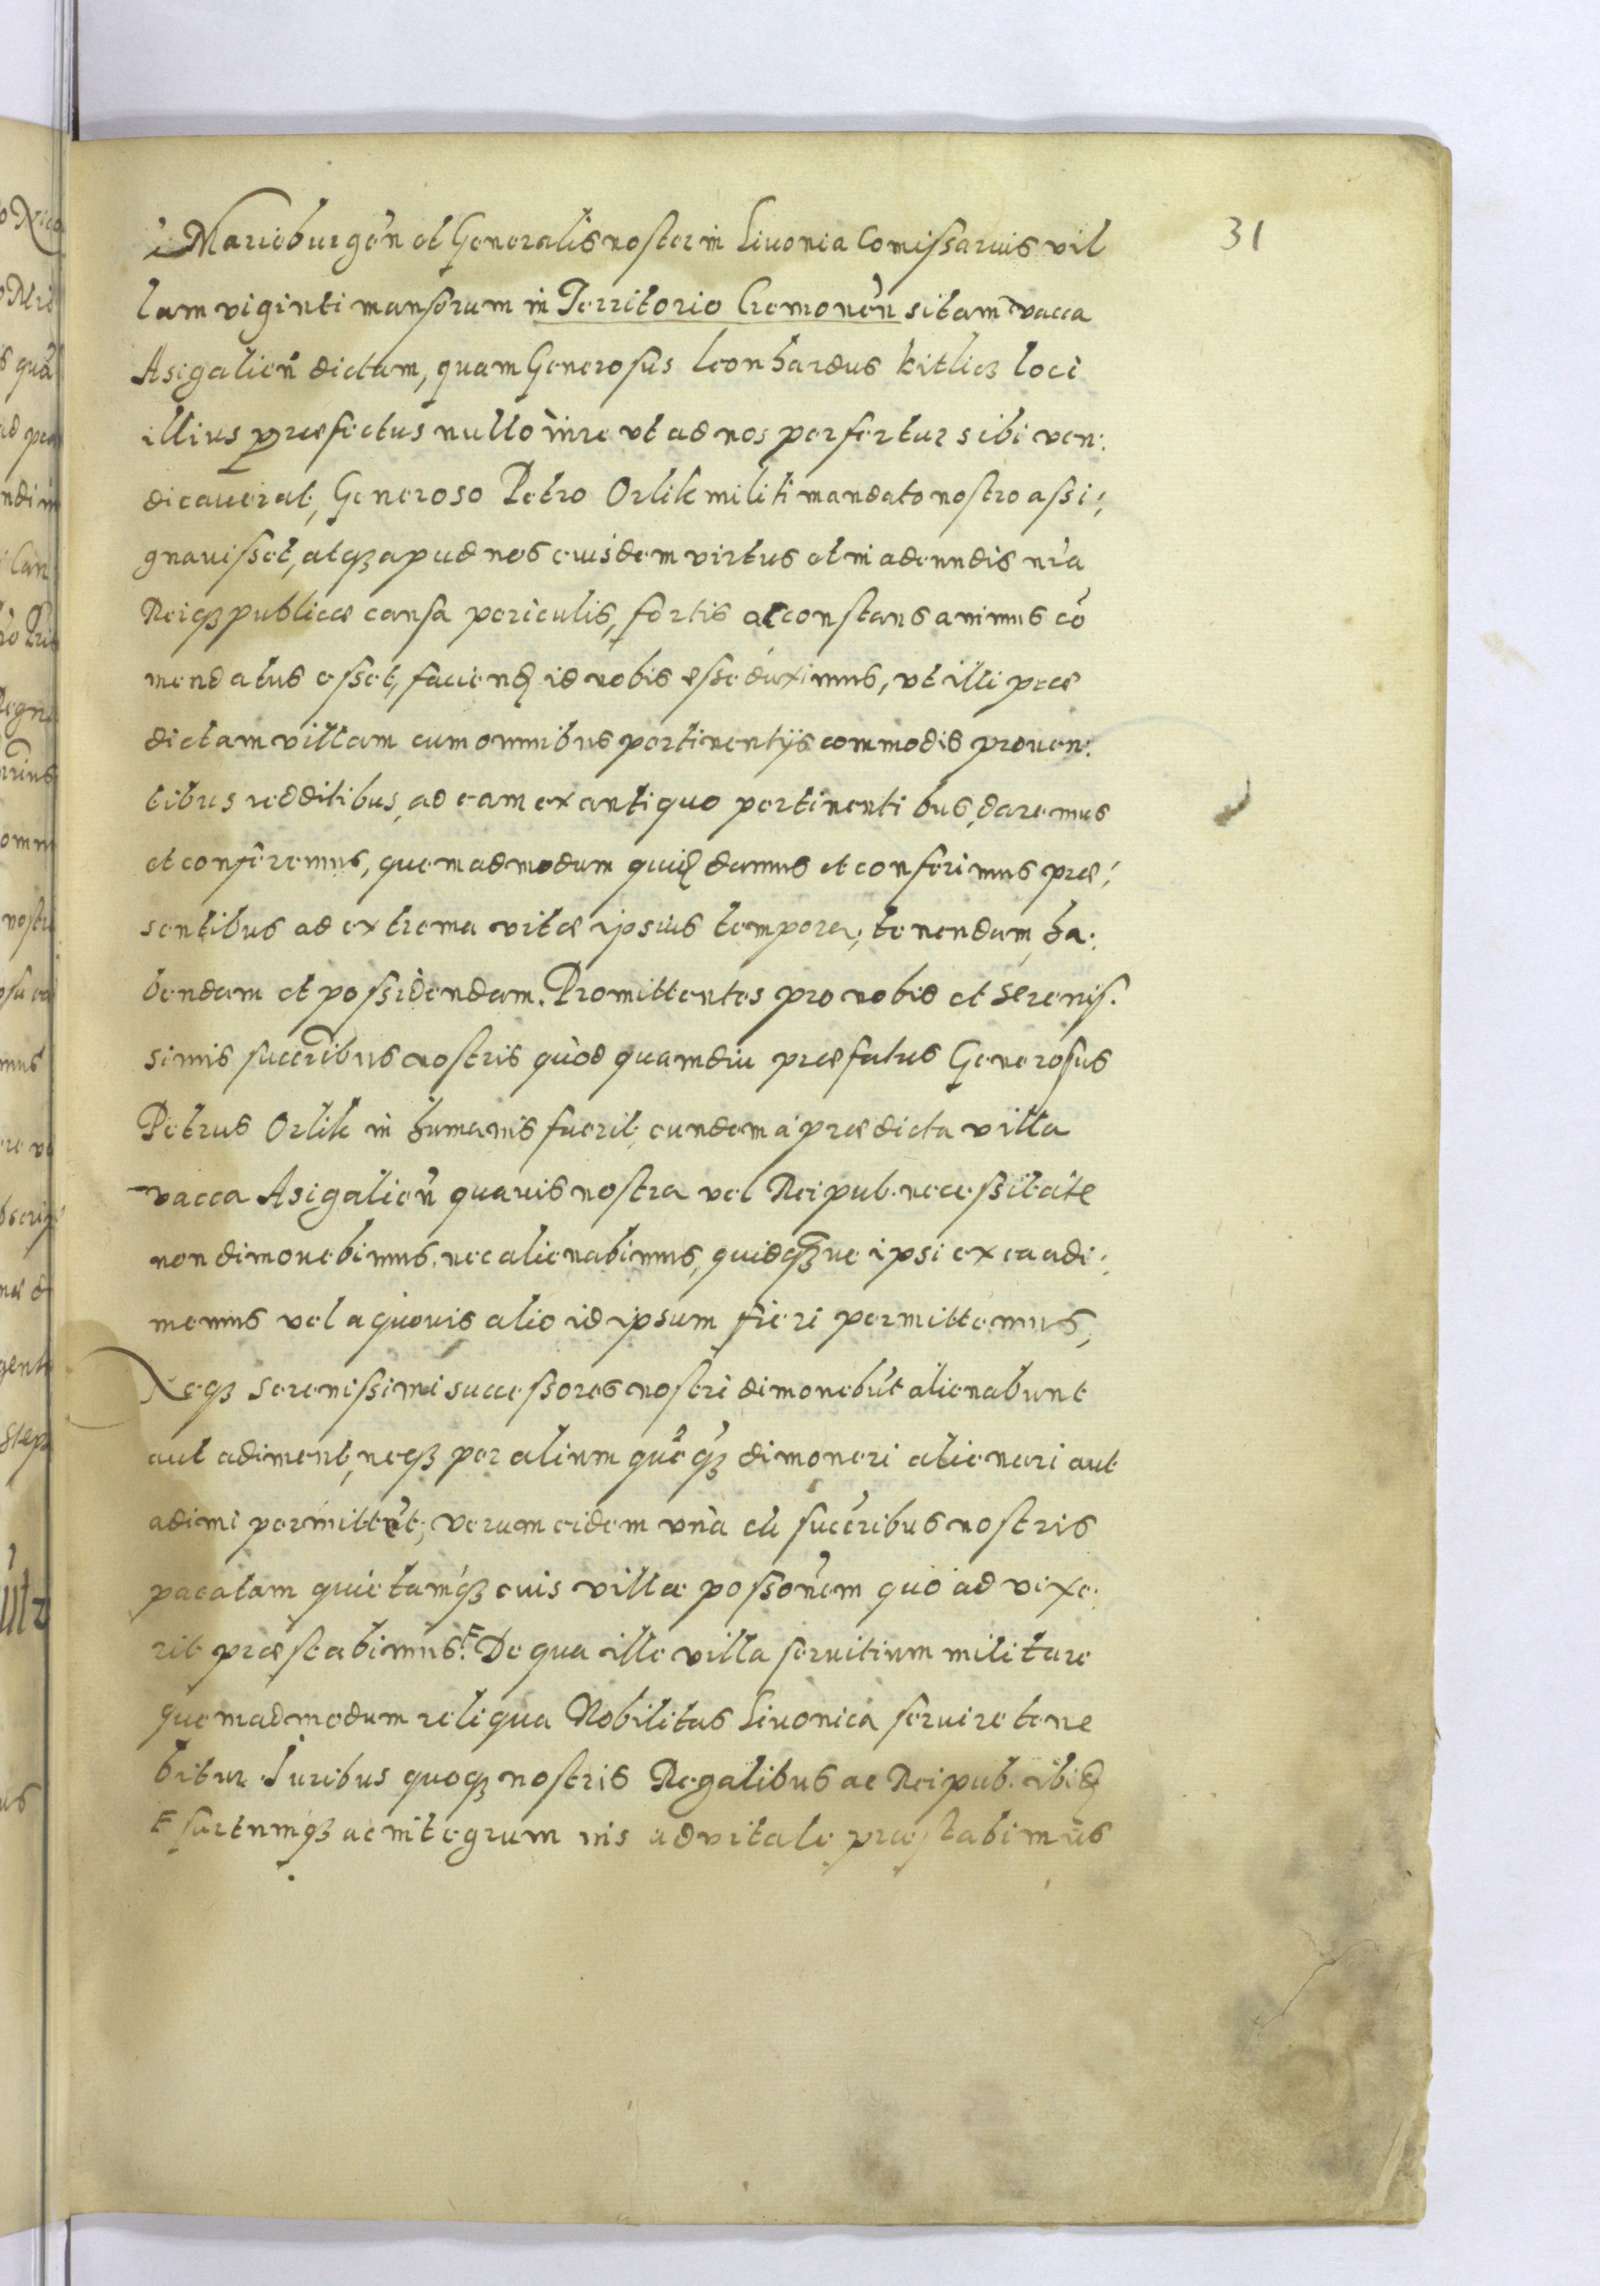 31
Marieburgen̄ et Generalis noster in Liuonia Comissarius vil
lam viginti mansorum in Territorio Cremonen̄ sitam vacca
Asigalien̄ dictam, quam Generosus Leonhardus Kitlicz loci
illius præfectus nullo iure vt ad nos perfertur sibi ven:
dicauerat, Generoso Petro Orlik militi mandato nostro assi:
gnauisset, atqꝫ apud nos eiusdem virtus et in adeundis nr̄a
Reiqꝫ publicæ causa periculis, fortis ac constans animus cō
mendatus esset, faciendꝫ id nobis esse duximus, vt illi præ
dictam villam cum omnibus pertinentijs commodis prouen:
tibus redditibus, ad eam ex antiquo pertinentibus, daremus
et conferemus, quemadmodum quidꝫ damus et conferimus præ:
sentibus ad extrema vitæ ipsius tempora, tenendam, ha:
bendam et possidendam. Promittentes pro nobis et Serenis.
simis succeribus nostris quòd quamdiu præfatus Generosus
Petrus Orlik in humanis fuerit, eundem á prædicta villa
vacca Asigalien̄ quauis nostra vel Reipub. necessitate
non dimouebimus, nec alienabimus, quidqꝫ ue ipsi ex ea adi:
memus vel a quouis alio id ipsum fieri permittemus,
Neqꝫ Serenissimi successores nostri dimouebūt alienabunt
aut adiment, neqꝫ per alium quēqꝫ dimoueri alienari aut
adimi permittēt; verum eidem vnà cū succribus nostris
pacatam quietamqꝫ euis villæ possōnem quo ad vixe.
rit præstabimus. F De qua ille villa seruitium militare
quemadmodum reliqua Nobilitas Liuonica seruire tene
bitur Iuribus quoqꝫ nostris Regalibus ac Reipub. ibidꝫ
F sartumqꝫ ac integrum ius aduitale præstabimus